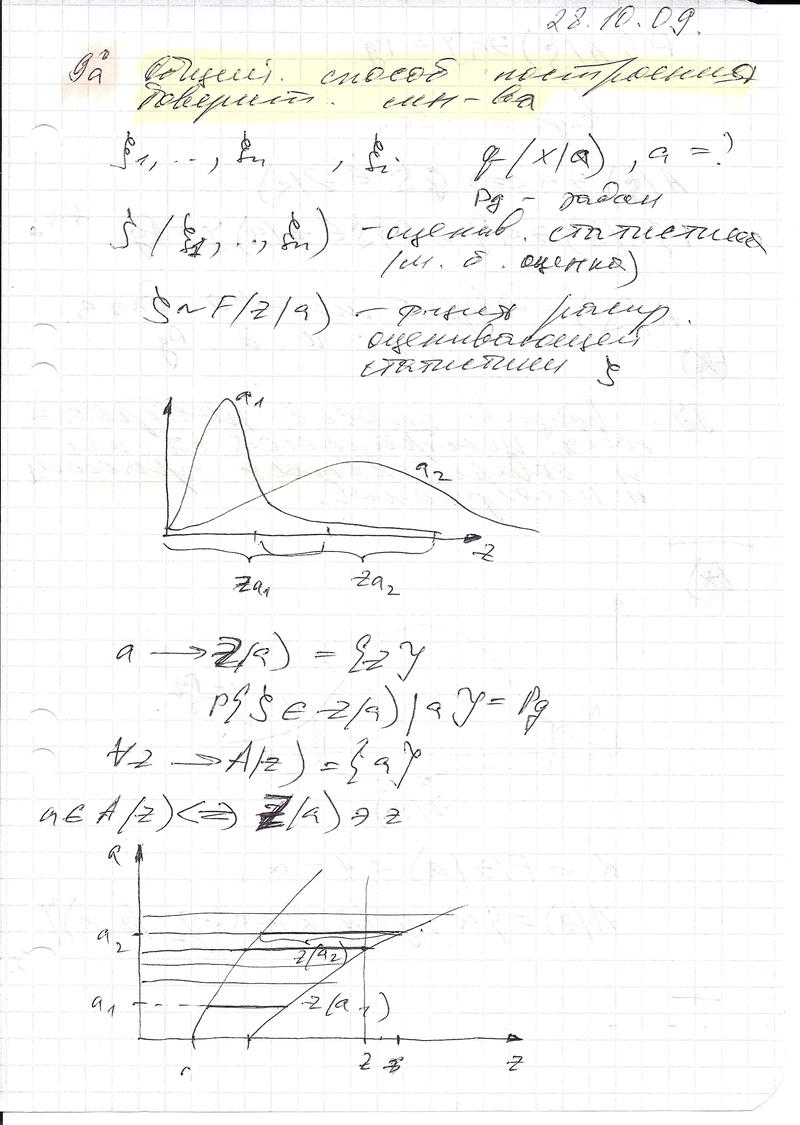 28.10.09.
9а Общий. способ построения
доверит. мн-ва
ξ1, .., ξn , ξi q(x|a), a = ?
Pg - задан
ζ(ξ1, .., ξn) - оценив. статистика
(м. б. оценка)
ζ ~ F(z|a) - функция распр.
оценивающей
статистики ζ
a1
a2
z
Za1 Za2
a → Z(a) = {z}
P{ζ ∈ Z(a)|a} = Pg
∀z → A(z) = {a}
a ∈ A(z) <=> Z(a) ∋ z
a
a2
z(a2)
a1 z(a1)
z z z